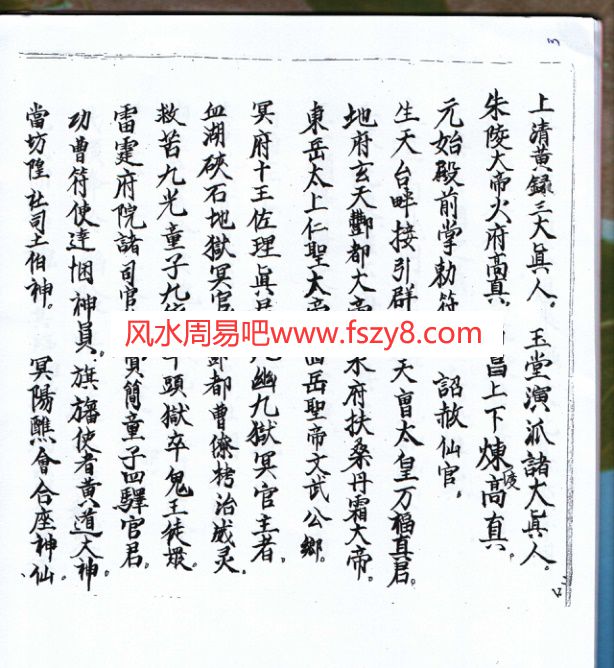 上清黃籙三大眞人。玉堂演派諸大眞人。
朱陵大帝火府高真。昌上下煉度高真。
元始殿前掌勅符 詔赦仙官。
生天台畔接引群 天曹太皇万福真君。
地府玄天酆都大帝 水府扶桑丹霜大帝。
東岳太上仁聖大帝 岳聖帝文武公鄉。
冥府十王佐理眞 九幽九獄冥官主者。
血湖硤石地獄冥官 酆都曹僚栲治威灵。
救苦九光童子九 牛頭獄卒鬼王徒眾。
雷霆府院諸司官 貭簡童子四驛官君。
功曹符使達悃神員。旗旛使者黄道大神。
當坊隍社司土伯神。冥陽醮會合座神仙。
风水周易吧www.fszy8.com
3